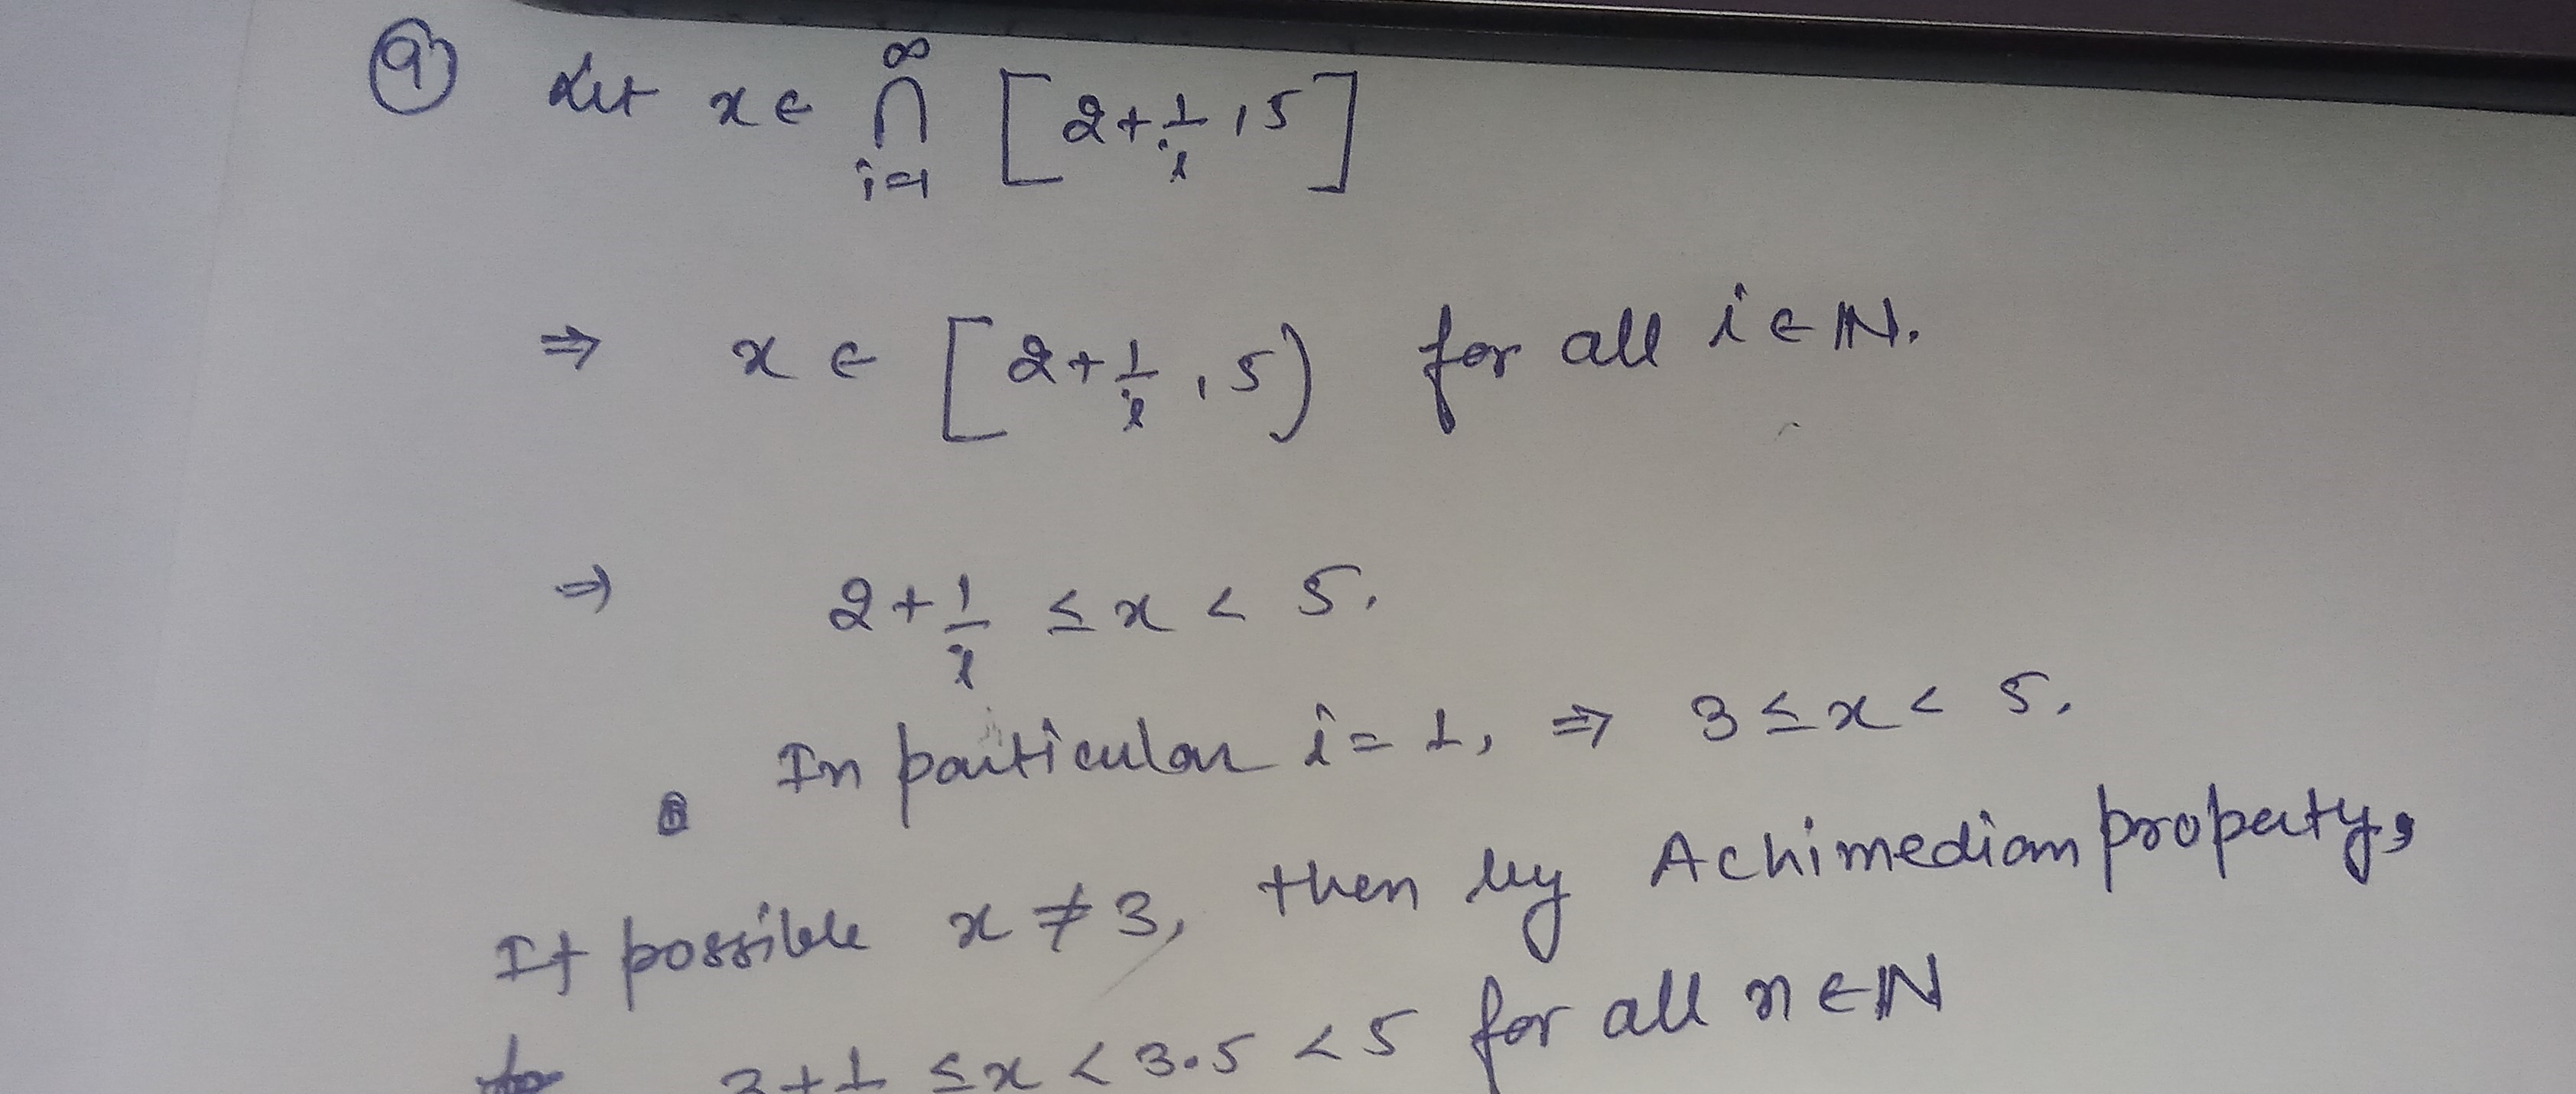 9 Let x ∈ ∞⋂i=1 [2+1/i, 5]
⇒ x ∈ [2+1/i, 5) for all i ∈ ℕ.
⇒ 2+1/i ≤ x < 5.
In particular i = 1, ⇒ 3 ≤ x < 5.
If possible x ≠ 3, then by Achimedian property,
≤ x < 3.5 < 5 for all n ∈ ℕ